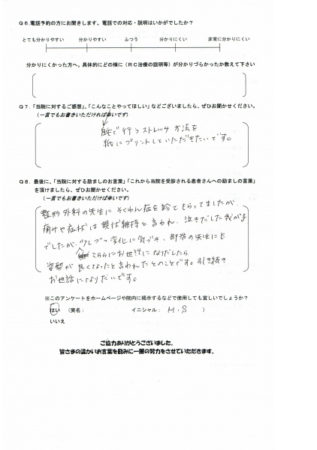 Q6.電話予約の方にお聞きします。電話での対応・説明はいかがでしたか?
とても分かりやすい 分かりやすい ふつう 分かりにくい 非常に分かりにくい
分かりにくかった方へ。具体的にどの様に(RC治療の説明等)が分かりづらかったか教えて下さい
Q7.「当院に対するご感想」、「こんなことやってほしい」などございましたら、ぜひお聞かせください。
(一言でもお書きいただければ幸いです)
家で行うストレッチ方法を
紙にプリントしていただきたいです。
Q8.最後に、「当院に対する励ましのお言葉」「これから当院を受診される患者さんへの励ましの言葉」
を頂けましたら、ぜひお聞かせください。
(一言でもお書きいただけば幸いです)
整形外科の先生に そくわん症を診てもらってましたが
痛みや症状は現状維持と言われ、泣きだした我が子
でしたが、少しずつ変化に気づき、
こちらにお世話になりだしたら
姿勢が良くなったと言われたとのことです。引き続き
お世話になりたいです。
※このアンケートをホームページや院内に掲示するなどで使用しても宜しいでしょうか?
はい (実名: イニシャル: M.S )
いいえ
ご協力ありがとうございました。
皆さまの温かいお言葉を励みに一層の努力をさせていただきます。